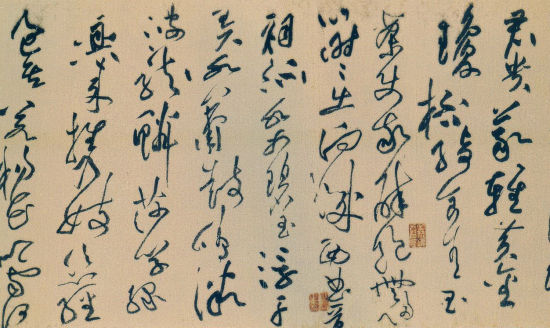 君貴義輕黄金
瓊杯綺食青玉
案使我醉飽無歸
心時時出向城西曲晉
祠流水如碧玉浮舟
弄水簫鼓鳴微
波龍鱗莎草緑
興来携妓恣經
過其若楊花似雪何